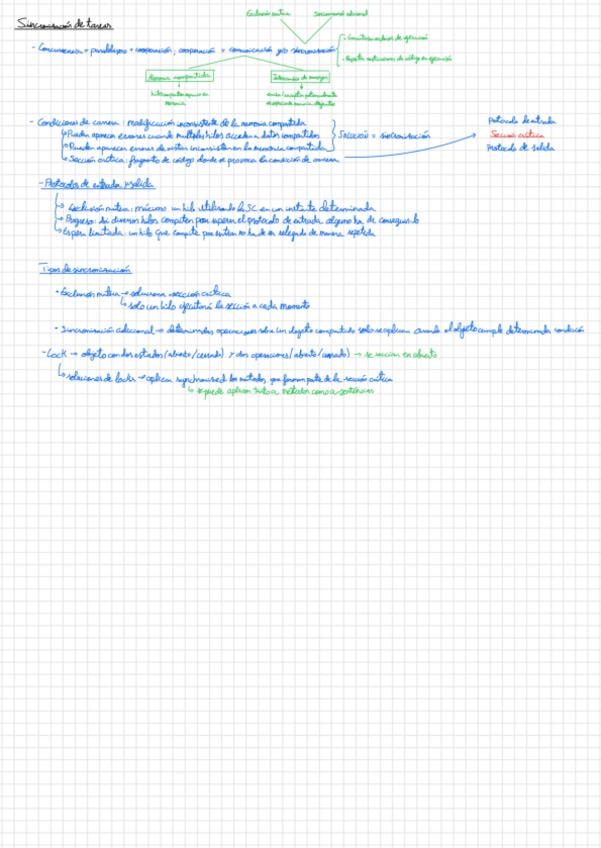 Exclusión mutua Sincronización condicional
Sincronización de tareas
- Concurrencia = paralelismo + cooperación, cooperación = comunicación y/o sincronización
· Respetar restricciones de código en ejecución
Memoria compartida Intercambio de mensajes
memoria
- Condiciones de carrera: modificación inconsistente de la memoria compartida
Pueden aparecer errores cuando múltiples hilos acceden a datos compartidos
Pueden aparecer errores de vistas inconsistentes en la memoria compartida
Sección crítica: fragmento de código donde se provoca la condición de carrera
Solución = sincronización
Protocolo de entrada
Sección crítica
Protocolo de salida
- Protocolos de entrada y salida
Exclusión mutua: máximo un hilo utilizando la SC en un instante determinado
Progreso: si diversos hilos compiten para superar el protocolo de entrada alguno ha de conseguirlo
Espera limitada: un hilo que compite por entrar no ha de ser relegado de manera repetida
Tipos de sincronización
· Exclusión mutua → soluciona sección crítica
solo un hilo ejecutará la sección a cada momento
· Sincronización condicional → determinadas operaciones sobre un objeto compartido solo se aplican cuando el objeto cumple determinada condición
- Lock → objeto con dos estados (abierto/cerrado) y dos operaciones (abierto/cerrado) → se inician en abierto
soluciones de locks → aplicar synchronized los métodos que forman parte de la sección crítica
se puede aplicar tanto a métodos como a sentencias